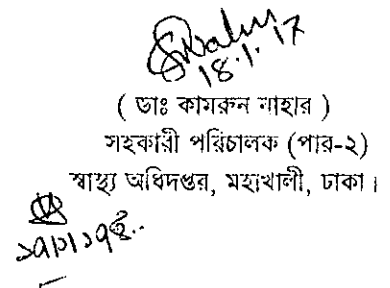 18.1.17
( ডাঃ কামরুন নাহার )
সহকারী পরিচালক (পার-২)
স্বাস্থ্য অধিদপ্তর, মহাখালী, ঢাকা।